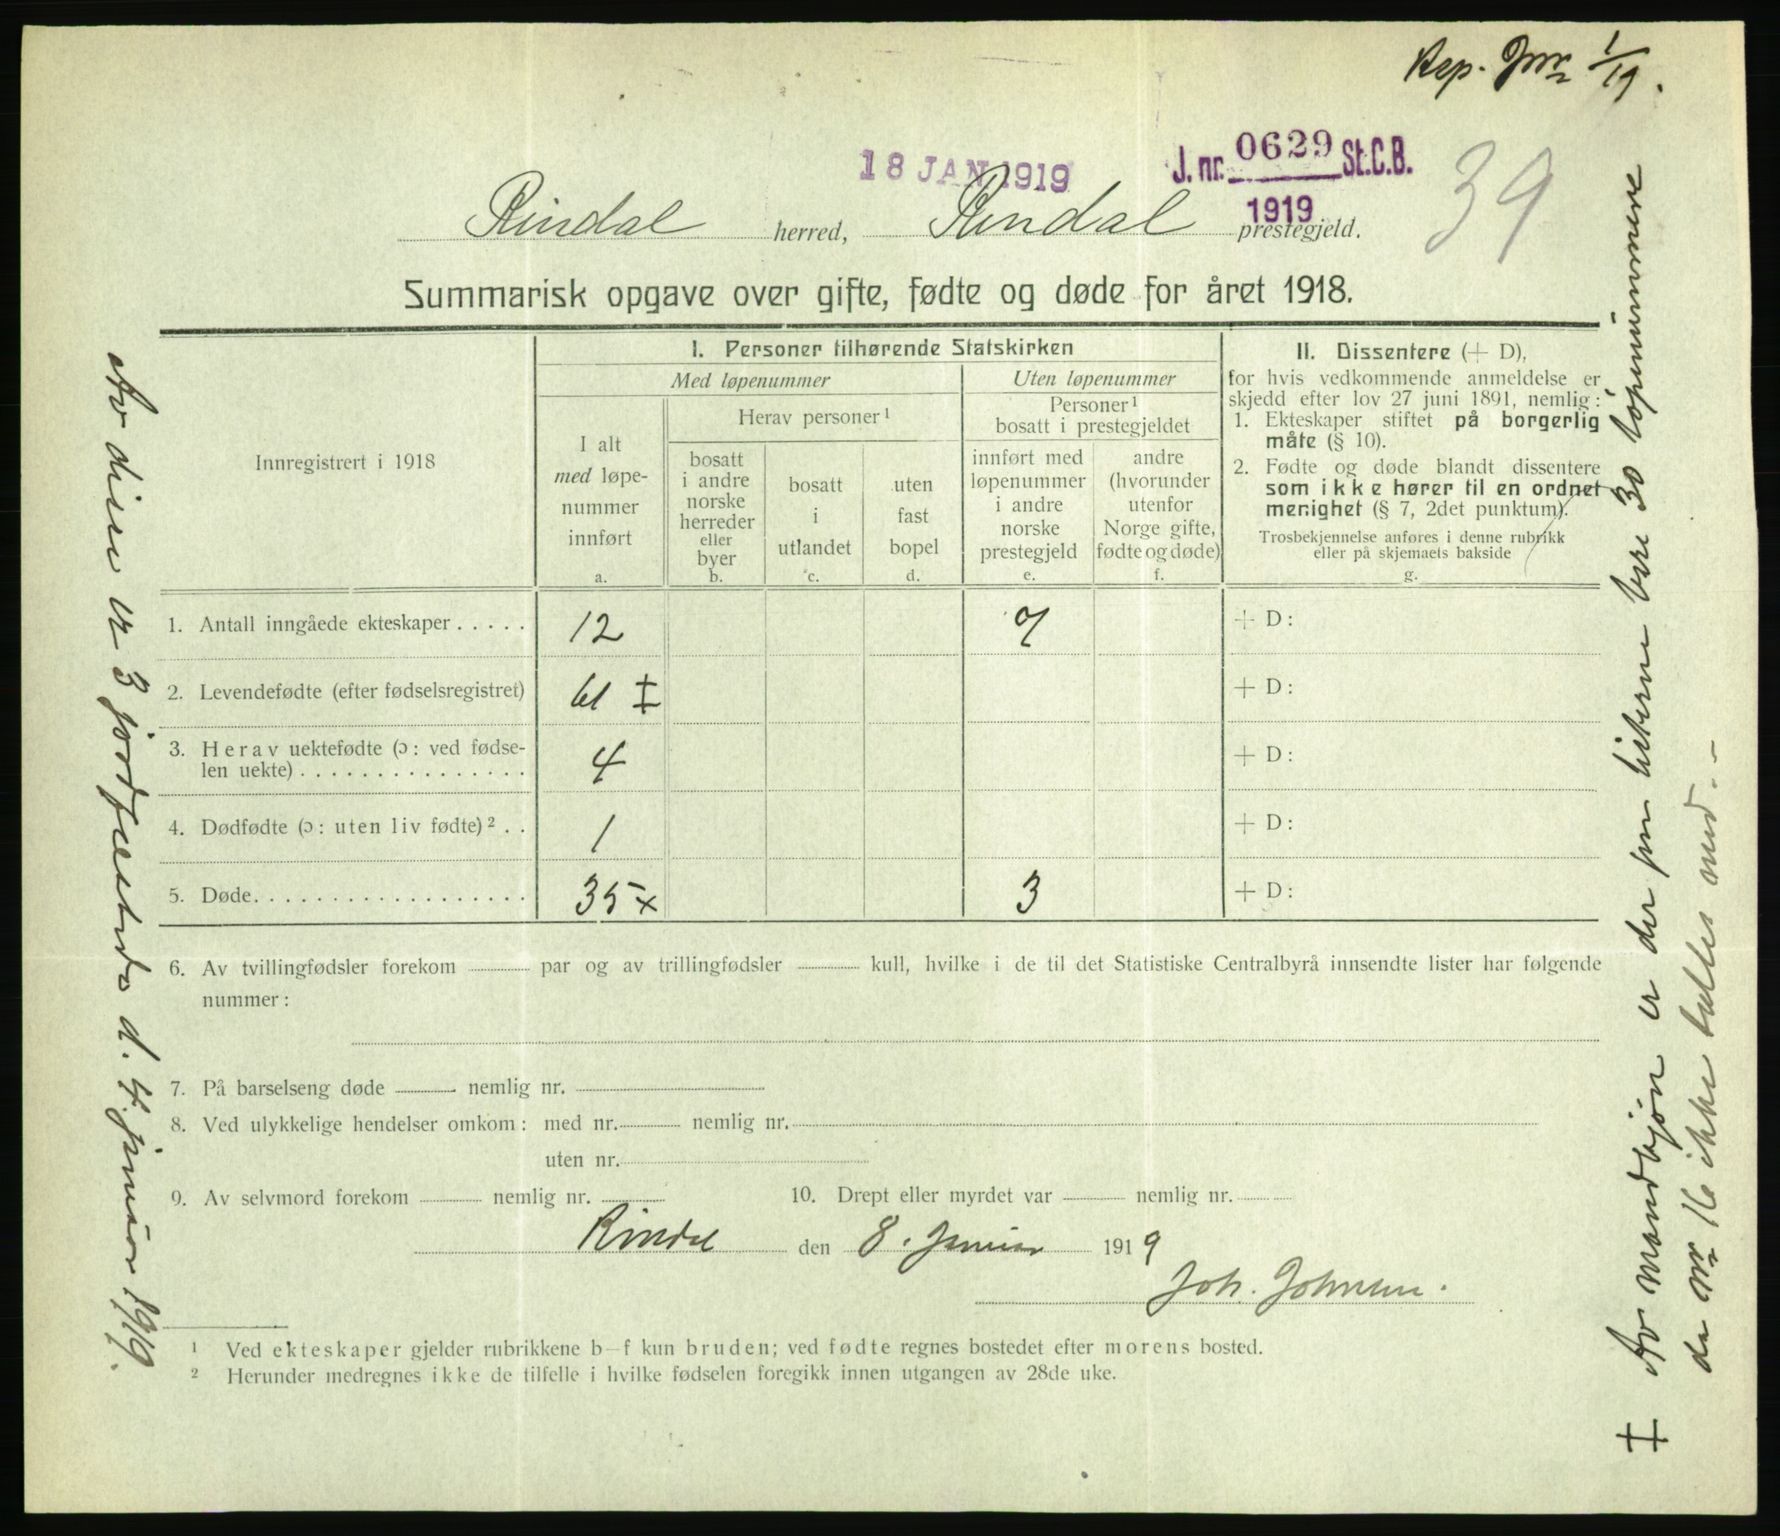 Rep. Jnr 1/19.
18 JAN 1919
J. nr. 0629 St.C.B.
1919
39
Rindal herred, Rindal prestegjeld.
Summarisk opgave over gifte, fødte og døde for året 1918.
Innregistrert i 1918
I. Personer tilhørende Statskirken
Med løpenummer
Uten løpenummer
I alt
med løpe-
nummer
innført
a.
Herav personer¹
bosatt
i andre
norske
herreder
eller
byer
b.
bosatt
i
utlandet
c.
uten
fast
bopel
d.
Personer¹
bosatt i prestegjeldet
innført med
løpenummer
i andre
norske
prestegjeld
e.
andre
(hvorunder
utenfor
Norge gifte,
fødte og døde)
f.
II. Dissentere (+ D),
for hvis vedkommende anmeldelse er
skjedd efter lov 27 juni 1891, nemlig:
1. Ekteskaper stiftet på borgerlig
måte (§ 10).
2. Fødte og døde blandt dissentere
som ikke hører til en ordnet
menighet (§ 7, 2det punktum).
Trosbekjennelse anføres i denne rubrikk
eller på skjemaets bakside
g.
1. Antall inngåede ekteskaper . . . . . 12 7 + D:
2. Levendefødte (efter fødselsregistret) 61 ‡ + D:
3. Herav uektefødte (ɔ: ved fødse-
len uekte) . . . . . . . . . . . . . . . 4 + D:
4. Dødfødte (ɔ: uten liv fødte)² . . 1 + D:
5. Døde. . . . . . . . . . . . . . . . . . 35 x 3 + D:
6. Av tvillingfødsler forekom par og av trillingfødsler kull, hvilke i de til det Statistiske Centralbyrå innsendte lister har følgende
nummer:
7. På barselseng døde nemlig nr.
8. Ved ulykkelige hendelser omkom: med nr. nemlig nr.
uten nr.
9. Av selvmord forekom nemlig nr. 10. Drept eller myrdet var nemlig nr.
Rindal den 8. Januar 1919
Joh. Johnsen.
¹ Ved ekteskaper gjelder rubrikkene b–f kun bruden; ved fødte regnes bostedet efter morens bosted.
² Herunder medregnes ikke de tilfelle i hvilke fødselen foregikk innen utgangen av 28de uke.
Av disse er 3 jordfæstede d. 4 januar 1919.
‡ Av mandkjøn er der paa listerne bare 30 løpenummere
da nr 16 ikke tælles med. –